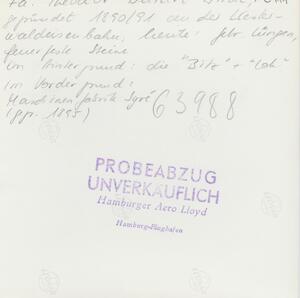 Fa. Theodor
gegründet 1890/91 an der
waldeisenbahn, heute: Gebr. Lüngen,
feuerfeste Steine
im Hintergrund: die "Bitz" + "Loh"
im Vordergrund:
Maschinenfabrik
(ggr. 1895)
63988
PROBEABZUG
UNVERKÄUFLICH
Hamburger Aero Lloyd
Hamburg-Flughafen